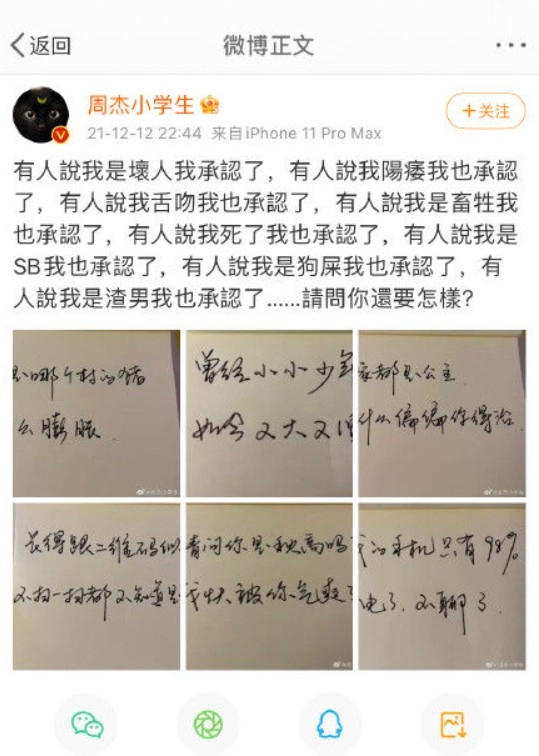 返回
微博正文
周杰小学生
+关注
21-12-12 22:44 来自iPhone 11 Pro Max
有人說我是壞人我承認了，有人說我陽痿我也承認
了，有人說我舌吻我也承認了，有人說我是畜牲我
也承認了，有人說我死了我也承認了，有人說我是
SB我也承認了，有人說我是狗屎我也承認了，有
人說我是渣男我也承認了......請問你還要怎樣?
是哪个村的猪
么膨胀
曾经小小少年
如今又大又
家都是公主
什么偏偏你得治
长得跟二维码似
不扫一扫都不知道是
请问你是秋高吗
我快被你气爽了
我的手机只有98%
电了.不聊了